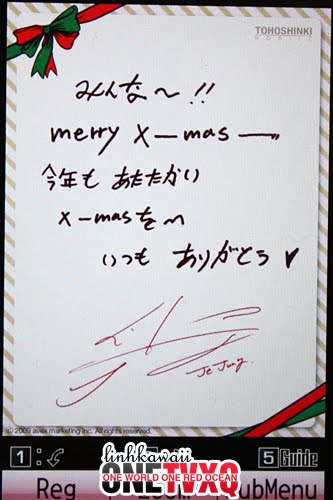 TOHOSHINKI
MOBILE
みんな〜!!
merry X-mas ー
今年も あたたかい
X-masを〜
いつも ありがとう♥
JeJung.
© 2009 avex marketing Inc. All rights reserved.
1 : 5 Guide
linhkawaii
ONETVXQ
ONE WORLD ONE RED OCEAN
Reg ubMenu